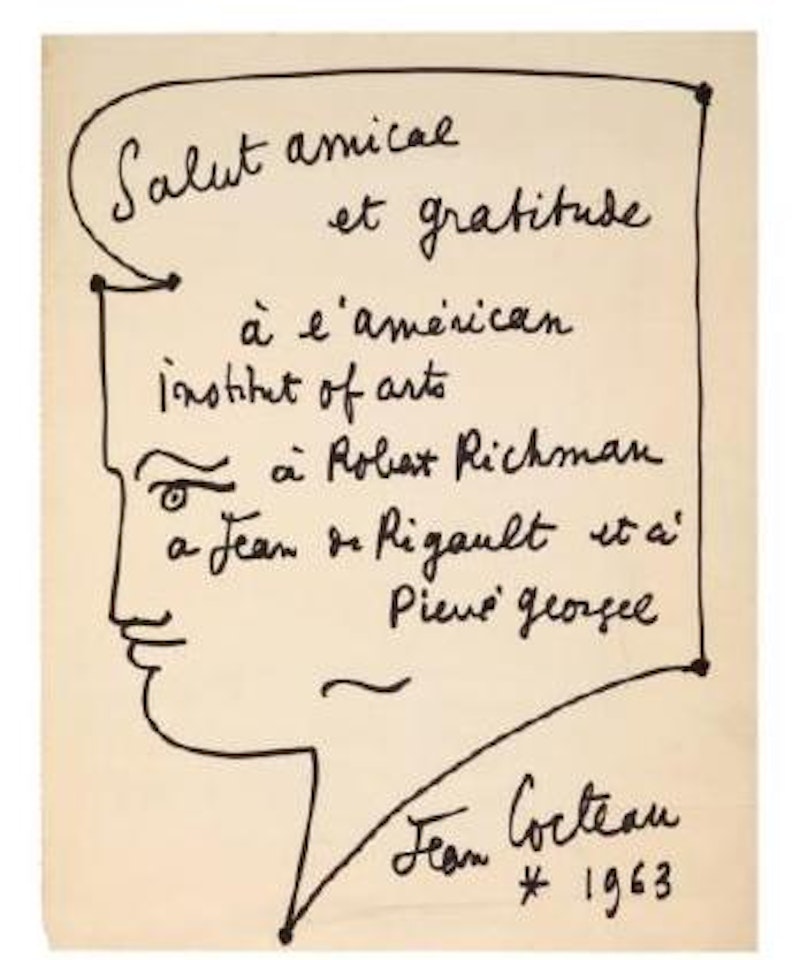 Salut amical
et gratitude
à l'américan
institut of arts
à Robert Richman
a Jean de Rigault et à
Pierre georgel
Jean Cocteau
* 1963